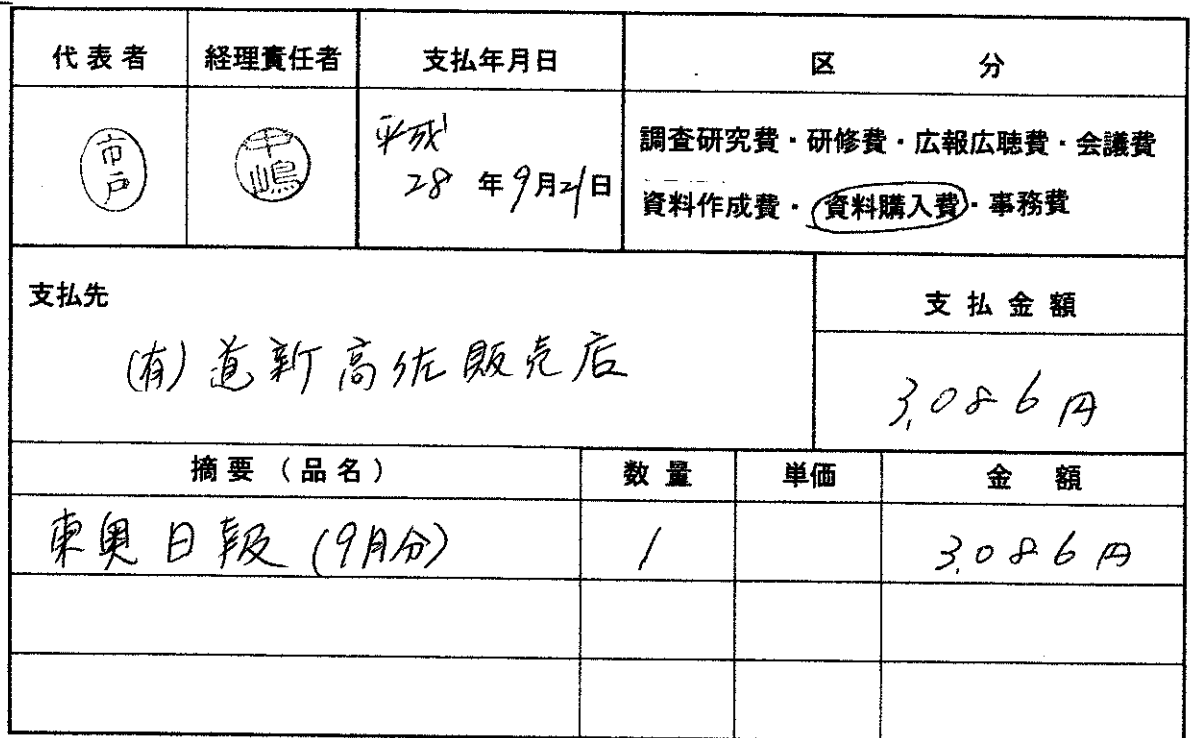 代表者 経理責任者 支払年月日 区分
市戸
中嶋
平成
28年9月21日
調査研究費・研修費・広報広聴費・会議費
資料作成費・資料購入費・事務費
支払先
支払金額
(有)道新高佐販売店
3,086円
摘要(品名) 数量 単価 金額
東奥日報(9月分) 1 3,086円